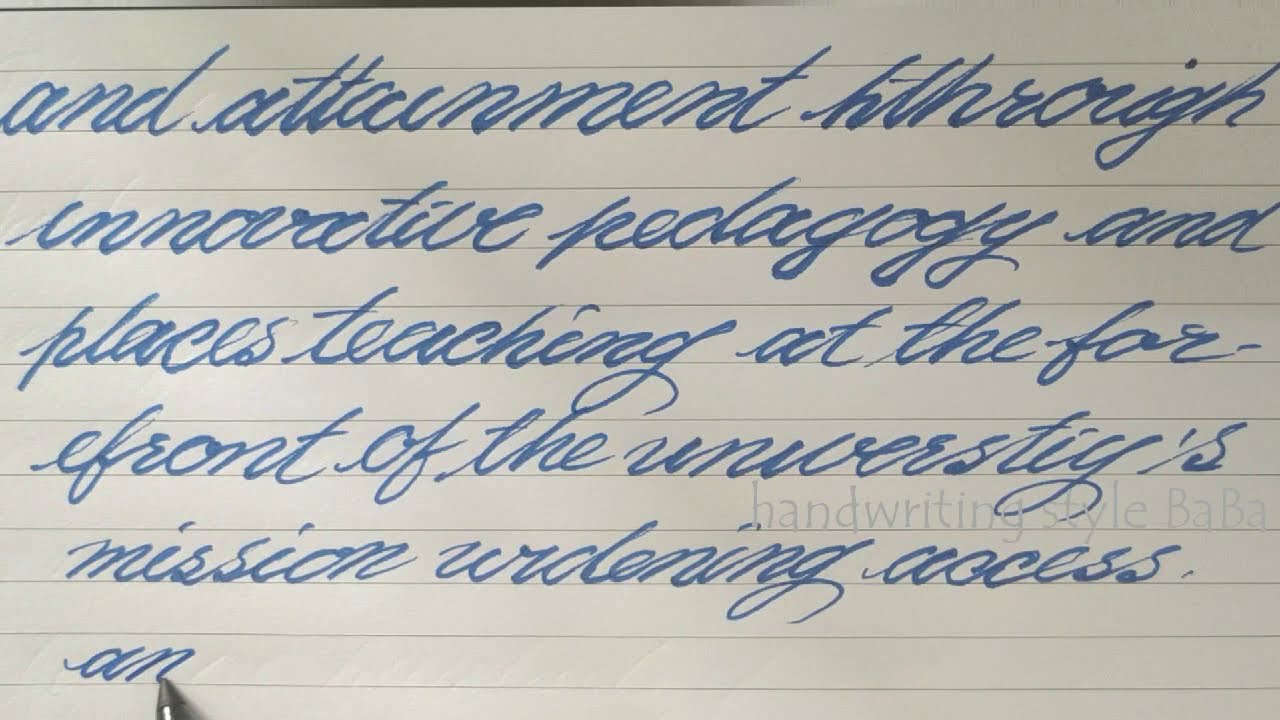 and attainment hthrough
innovative pedagogy and
places teaching at the for-
efront of the universtiy's
mission widening access.
an
handwriting style BaBa